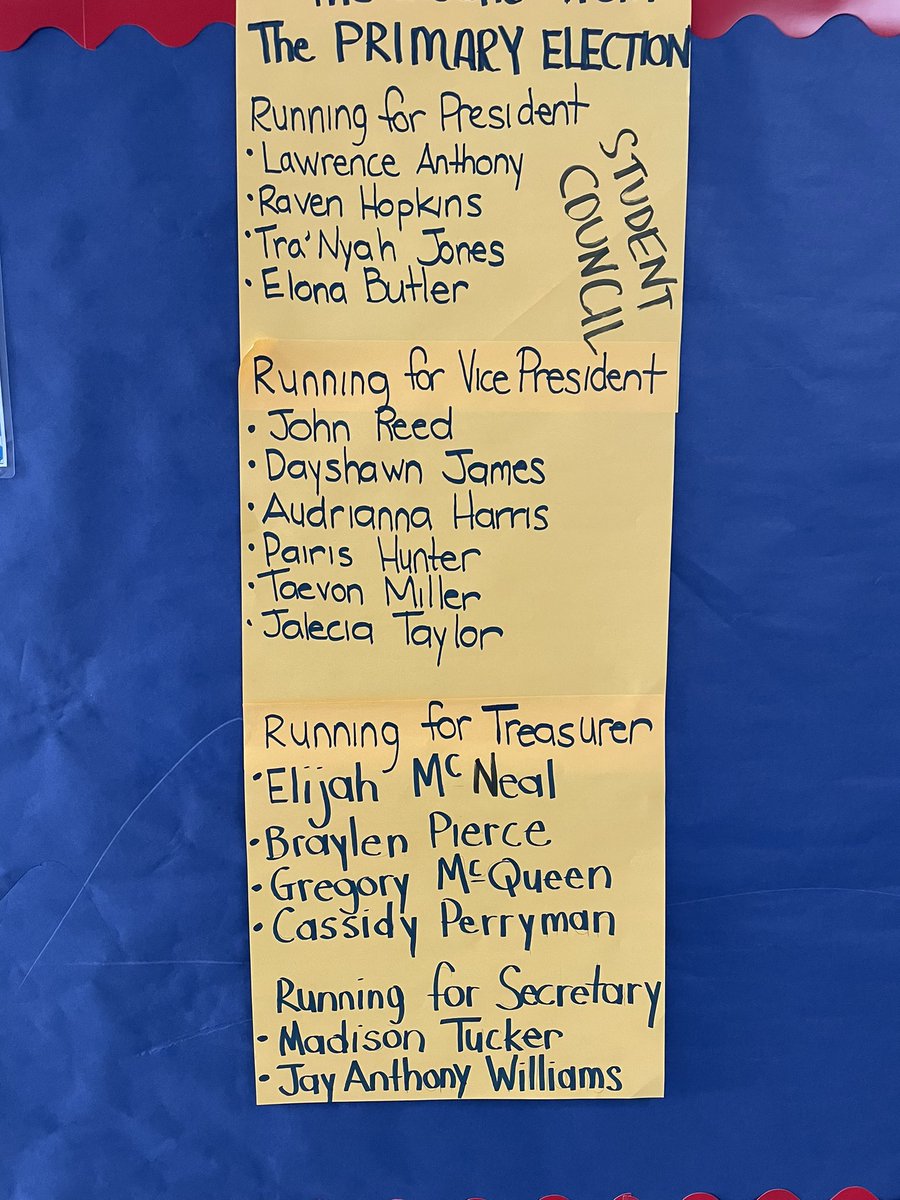 The PRIMARY ELECTION
Running for President
• Lawrence Anthony
• Raven Hopkins
• Tra'Nyah Jones
• Elona Butler
STUDENT
COUNCIL
Running for Vice President
• John Reed
• Dayshawn James
• Audrianna Harris
• Pairis Hunter
• Taevon Miller
• Jalecia Taylor
Running for Treasurer
• Elijah McNeal
• Braylen Pierce
• Gregory McQueen
• Cassidy Perryman
Running for Secretary
• Madison Tucker
• JayAnthony Williams